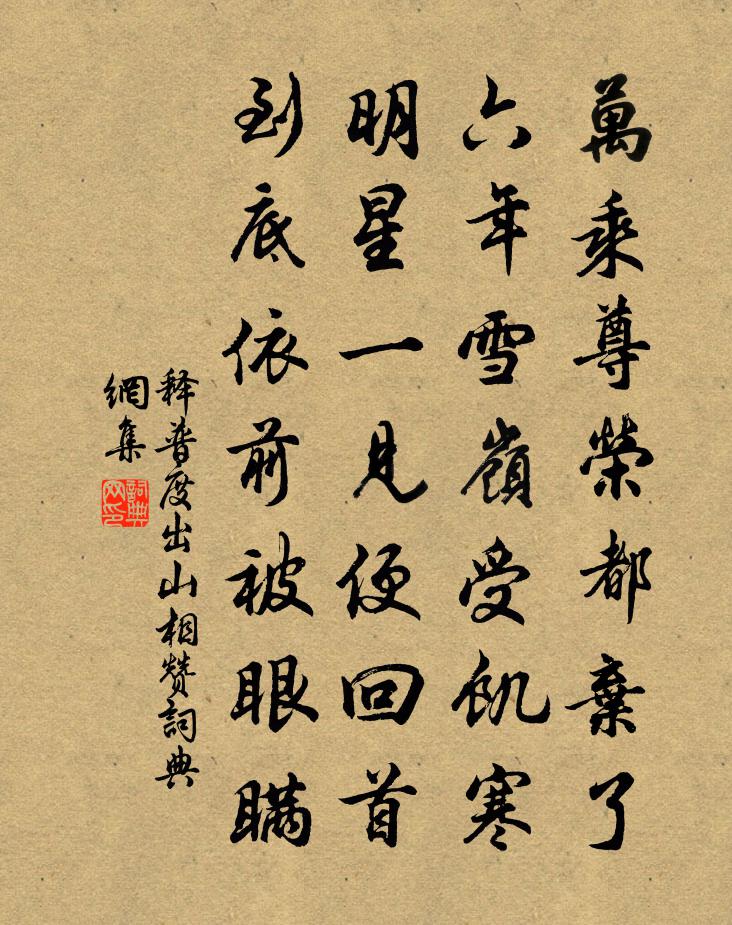 萬乘尊榮都棄了
六年雪嶺受飢寒
明星一見便回首
到底依前被眼瞞
释普度出山相赞詞典
網集
詞典
网印